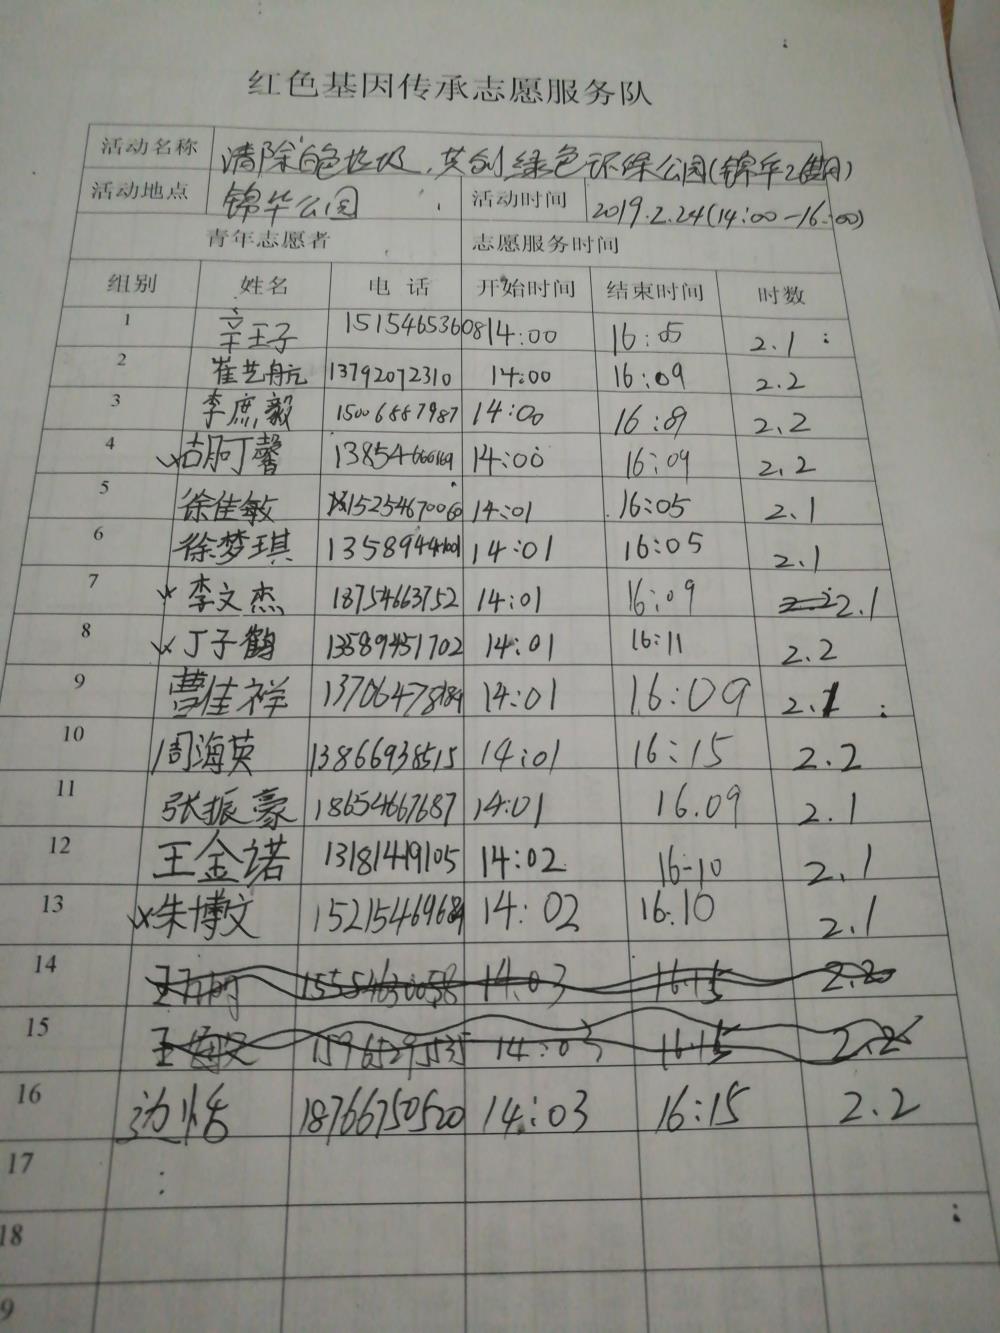 红色基因传承志愿服务队
活动名称 清除白色垃圾,共创绿色环保公园(锦华2期)
活动地点 锦华公园 活动时间 2019.2.24(14:00-16:00)
青年志愿者 志愿服务时间
组别 姓名 电话 开始时间 结束时间 时数
1 辛王子 15154653608 14:00 16:05 2.1
2 崔艺航 13792072310 14:00 16:09 2.2
3 李庶毅 15006887987 14:00 16:09 2.2
4 胡阿馨 14:00 16:09 2.2
5 徐佳敏 15254670060 14:01 16:05 2.1
6 徐梦琪 14:01 16:05 2.1
7 李文杰 18754663752 14:01 16:09 2.1
8 丁子鹤 13589451702 14:01 16:11 2.2
9 曹佳祥 14:01 16:09 2.1
10 周海英 13866938515 14:01 16:15 2.2
11 张振豪 18654667687 14:01 16.09 2.1
12 王金诺 13181449105 14:02 16-10 2.1
13 朱博文 14:02 16.10 2.1
14 14:03 16.15 2.20
15 14:03 16.15 2.2
16 边恬 18766750520 14:03 16:15 2.2
17
18
9